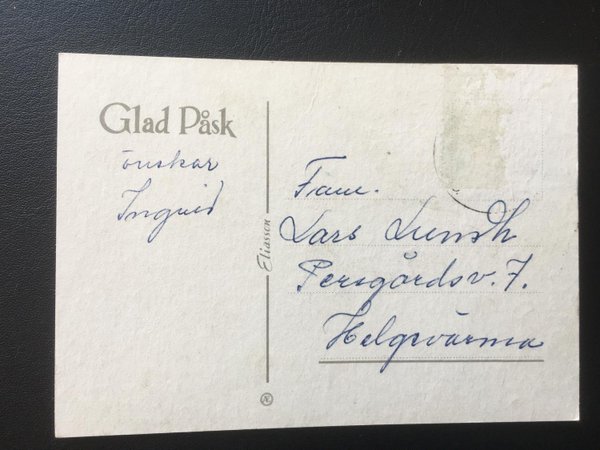 Glad Påsk
önskar
Ingrid
Eliasson
Fam.
Lars Lundh
Persgårdsv. 7.
Helgevärma